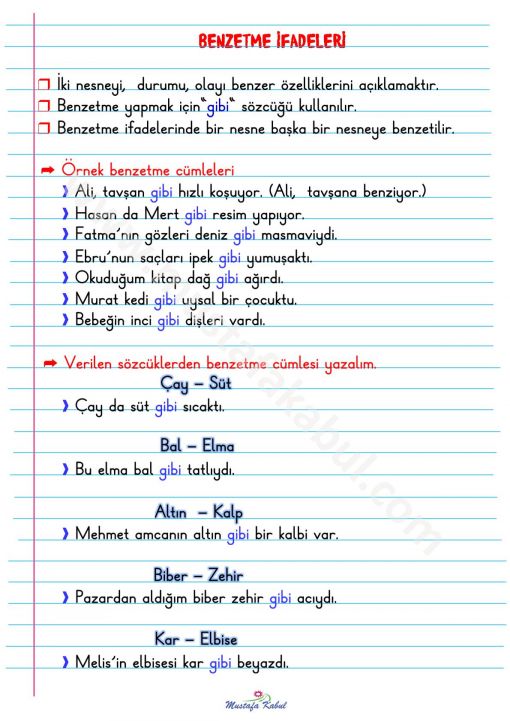 BENZETME İFADELERİ
İki nesneyi, durumu, olayı benzer özelliklerini açıklamaktır.
Benzetme yapmak için“gibi“ sözcüğü kullanılır.
Benzetme ifadelerinde bir nesne başka bir nesneye benzetilir.
Örnek benzetme cümleleri
Ali, tavşan gibi hızlı koşuyor. (Ali, tavşana benziyor.)
Hasan da Mert gibi resim yapıyor.
Fatma’nın gözleri deniz gibi masmaviydi.
Ebru’nun saçları ipek gibi yumuşaktı.
Okuduğum kitap dağ gibi ağırdı.
Murat kedi gibi uysal bir çocuktu.
Bebeğin inci gibi dişleri vardı.
Verilen sözcüklerden benzetme cümlesi yazalım.
Çay – Süt
Çay da süt gibi sıcaktı.
Bal – Elma
Bu elma bal gibi tatlıydı.
Altın – Kalp
Mehmet amcanın altın gibi bir kalbi var.
Biber – Zehir
Pazardan aldığım biber zehir gibi acıydı.
Kar – Elbise
Melis’in elbisesi kar gibi beyazdı.
Mustafa Kabul
www.mustafakabul.com